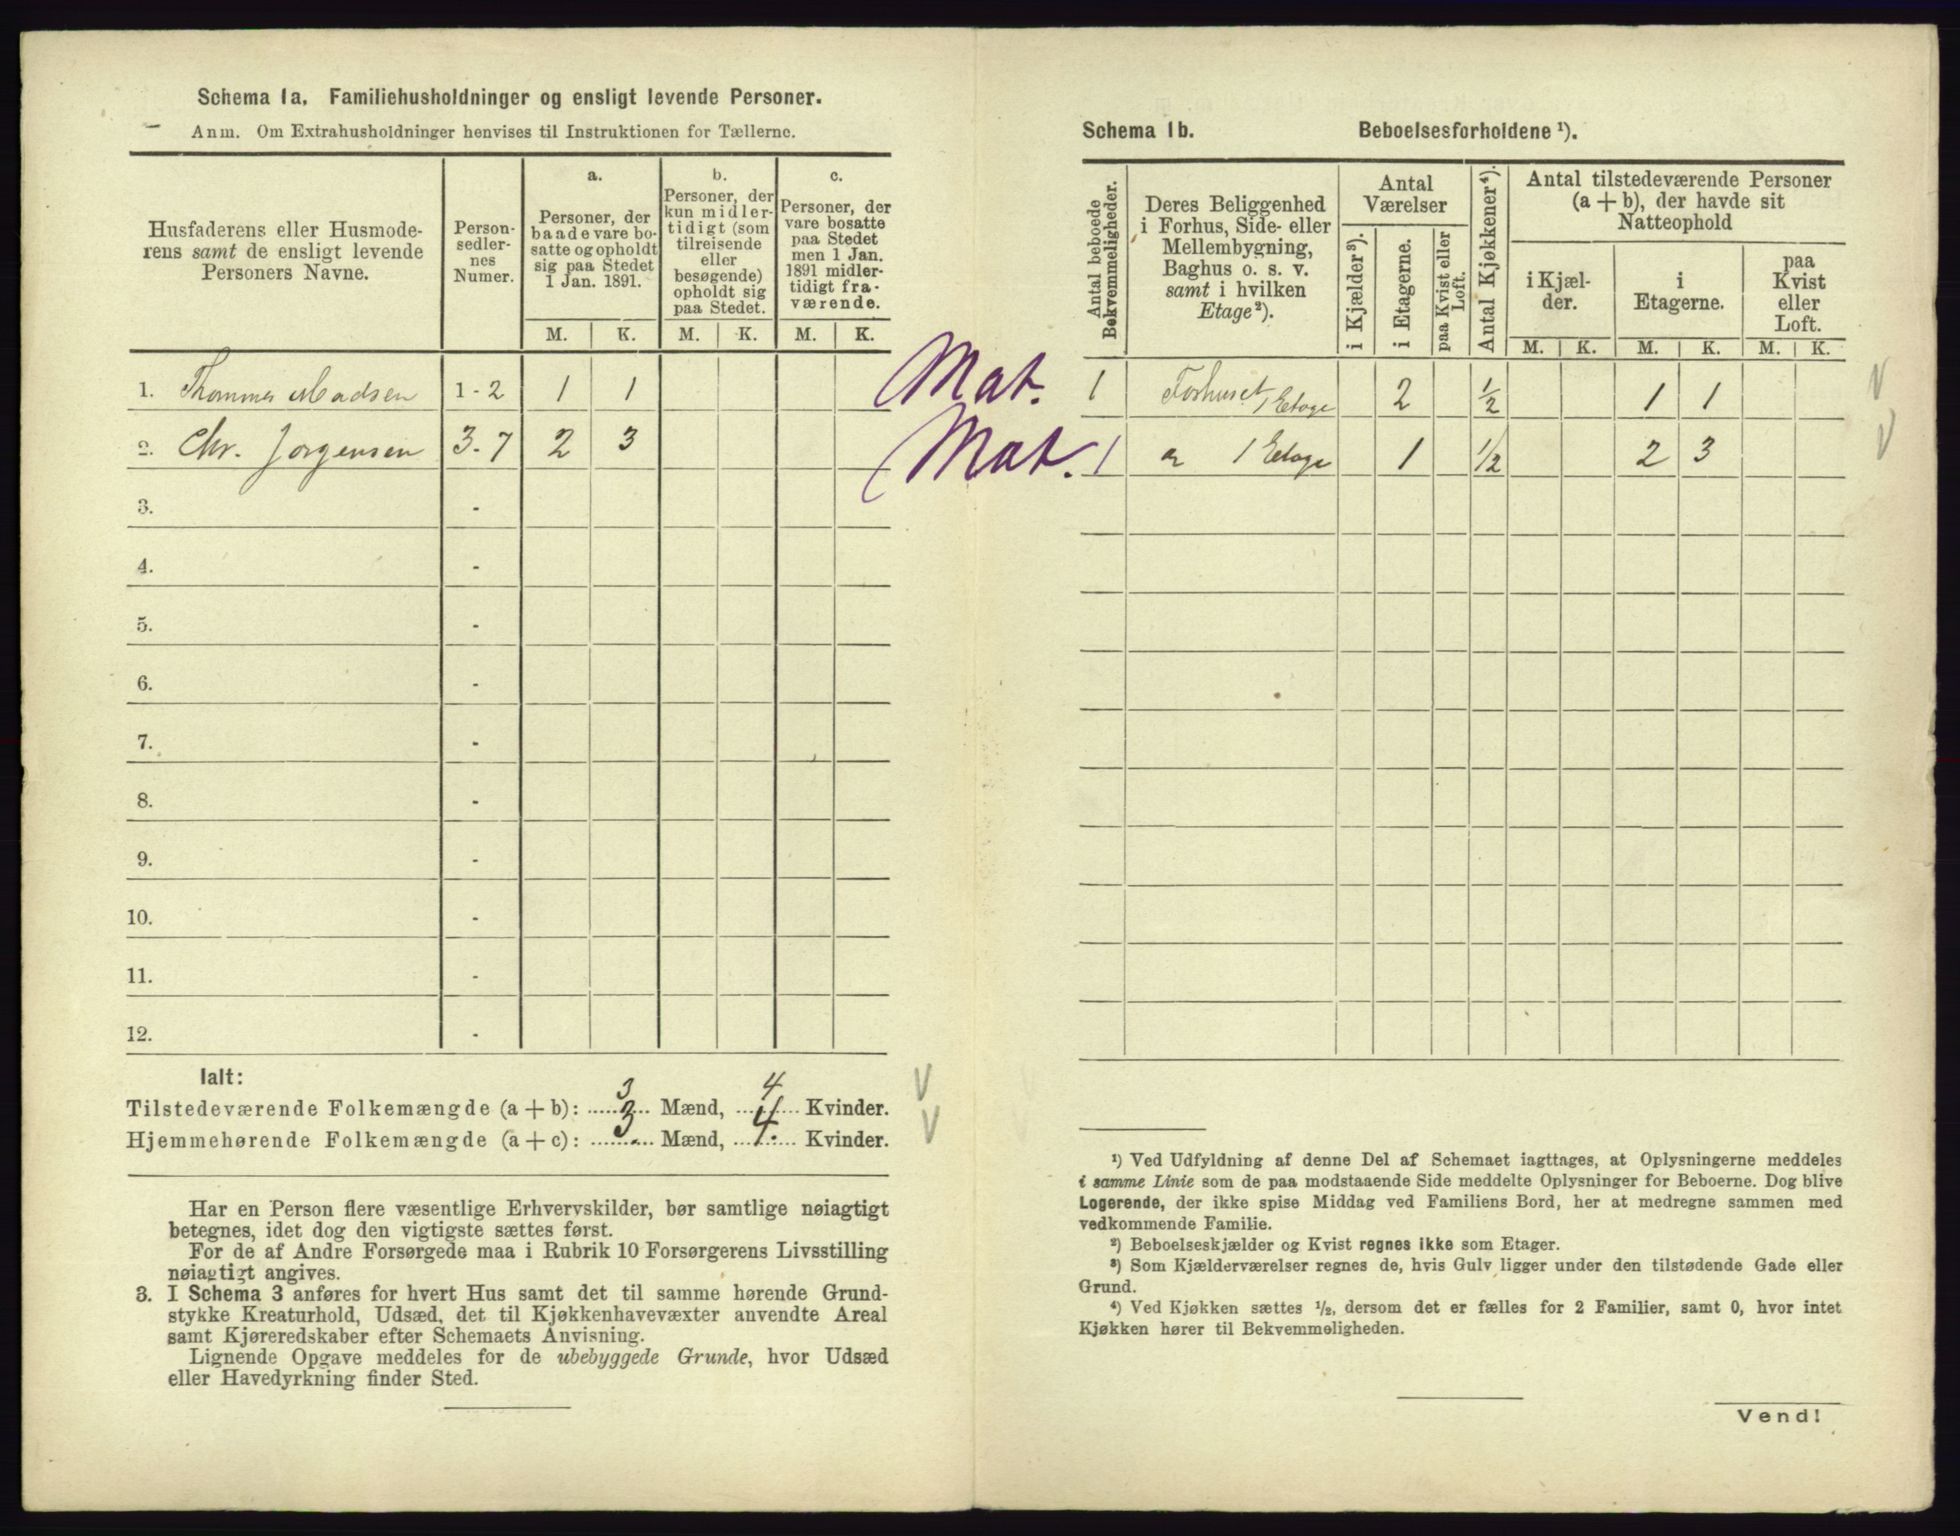 Schema 1a. Familiehusholdninger og ensligt levende Personer.
Anm. Om Extrahusholdninger henvises til Instruktionen for Tællerne.
Husfaderens eller Husmode-
rens samt de ensligt levende
Personers Navne.
Person-
sedler-
nes
Numer.
a.
Personer, der
baade vare bo-
satte og opholdt
sig paa Stedet
1 Jan. 1891.
b.
Personer, der
kun midler-
tidigt (som
tilreisende
eller
besøgende)
opholdt sig
paa Stedet.
c.
Personer, der
vare bosatte
paa Stedet
men 1 Jan.
1891 midler-
tidigt fra-
værende.
M. K. M. K. M. K.
1. Thommes Madsen 1-2 1 1
2. Chr. Jørgensen 3-7 2 3
3. -
4. -
5. -
6. -
7. -
8. -
9. -
10. -
11. -
12. -
Ialt:
3 4
Tilstedeværende Folkemængde (a+b): 3 Mænd, 4 Kvinder.
Hjemmehørende Folkemængde (a+c): Mænd, Kvinder.
Har en Person flere væsentlige Erhvervskilder, bør samtlige nøiagtigt
betegnes, idet dog den vigtigste sættes først.
For de af Andre Forsørgede maa i Rubrik 10 Forsørgerens Livsstilling
nøiagtigt angives.
3. I Schema 3 anføres for hvert Hus samt det til samme hørende Grund-
stykke Kreaturhold, Udsæd, det til Kjøkkenhavevæxter anvendte Areal
samt Kjøreredskaber efter Schemaets Anvisning.
Lignende Opgave meddeles for de ubebyggede Grunde, hvor Udsæd
eller Havedyrkning finder Sted.
Schema 1b. Beboelsesforholdene ¹).
Antal beboede
Bekvemmeligheder.
Deres Beliggenhed
i Forhus, Side- eller
Mellembygning,
Baghus o. s. v.
samt i hvilken
Etage²).
Antal
Værelser
i Kjælder³).
i Etagerne.
paa Kvist eller
Loft.
Antal Kjøkkener⁴).
Antal tilstedeværende Personer
(a + b), der havde sit
Natteophold
i Kjæl-
der.
i
Etagerne.
paa
Kvist
eller
Loft.
M. K. M. K. M. K.
Mat. 1 Forhuset 1 Etage 2 ½ 1 1
Mat. 1 " 1 Etage 1 1/2 2 3
¹) Ved Udfyldning af denne Del af Schemaet iagttages, at Oplysningerne meddeles
i samme Linie som de paa modstaaende Side meddelte Oplysninger for Beboerne. Dog blive
Logerende, der ikke spise Middag ved Familiens Bord, her at medregne sammen med
vedkommende Familie.
²) Beboelseskjælder og Kvist regnes ikke som Etager.
³) Som Kjælderværelser regnes de, hvis Gulv ligger under den tilstødende Gade eller
Grund.
⁴) Ved Kjøkken sættes ½, dersom det er fælles for 2 Familier, samt 0, hvor intet
Kjøkken hører til Bekvemmeligheden.
Vend!